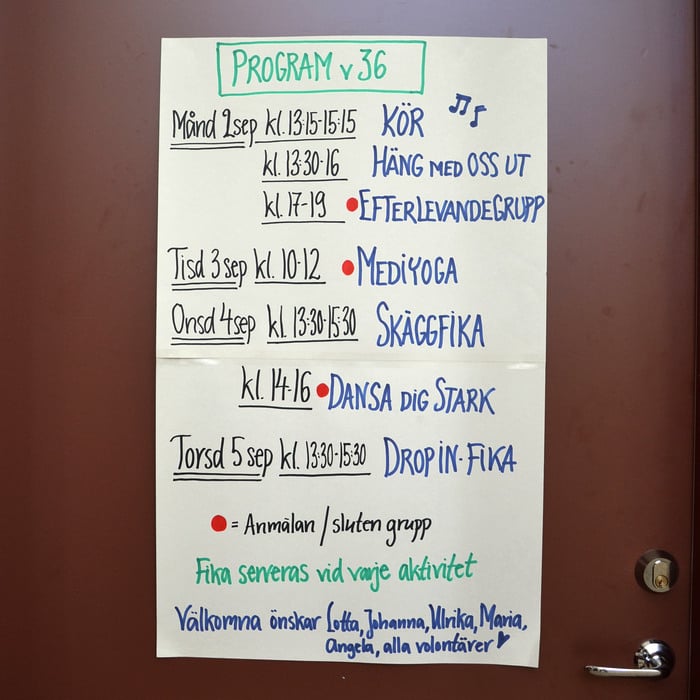 PROGRAM v 36
Månd 2sep kl. 13:15-15:15 KÖR
kl. 13:30-16 HÄNG MED OSS UT
kl. 17-19 EFTERLEVANDEGRUPP
Tisd 3sep kl. 10-12 MEDIYOGA
Onsd 4sep kl. 13:30-15:30 SKÄGGFIKA
kl. 14-16 DANSA DIG STARK
Torsd 5sep kl. 13:30-15:30 DROPIN-FIKA
= Anmälan / sluten grupp
Fika serveras vid varje aktivitet
Välkomna önskar Lotta, Johanna, Ulrika, Maria,
Angela, alla volontärer